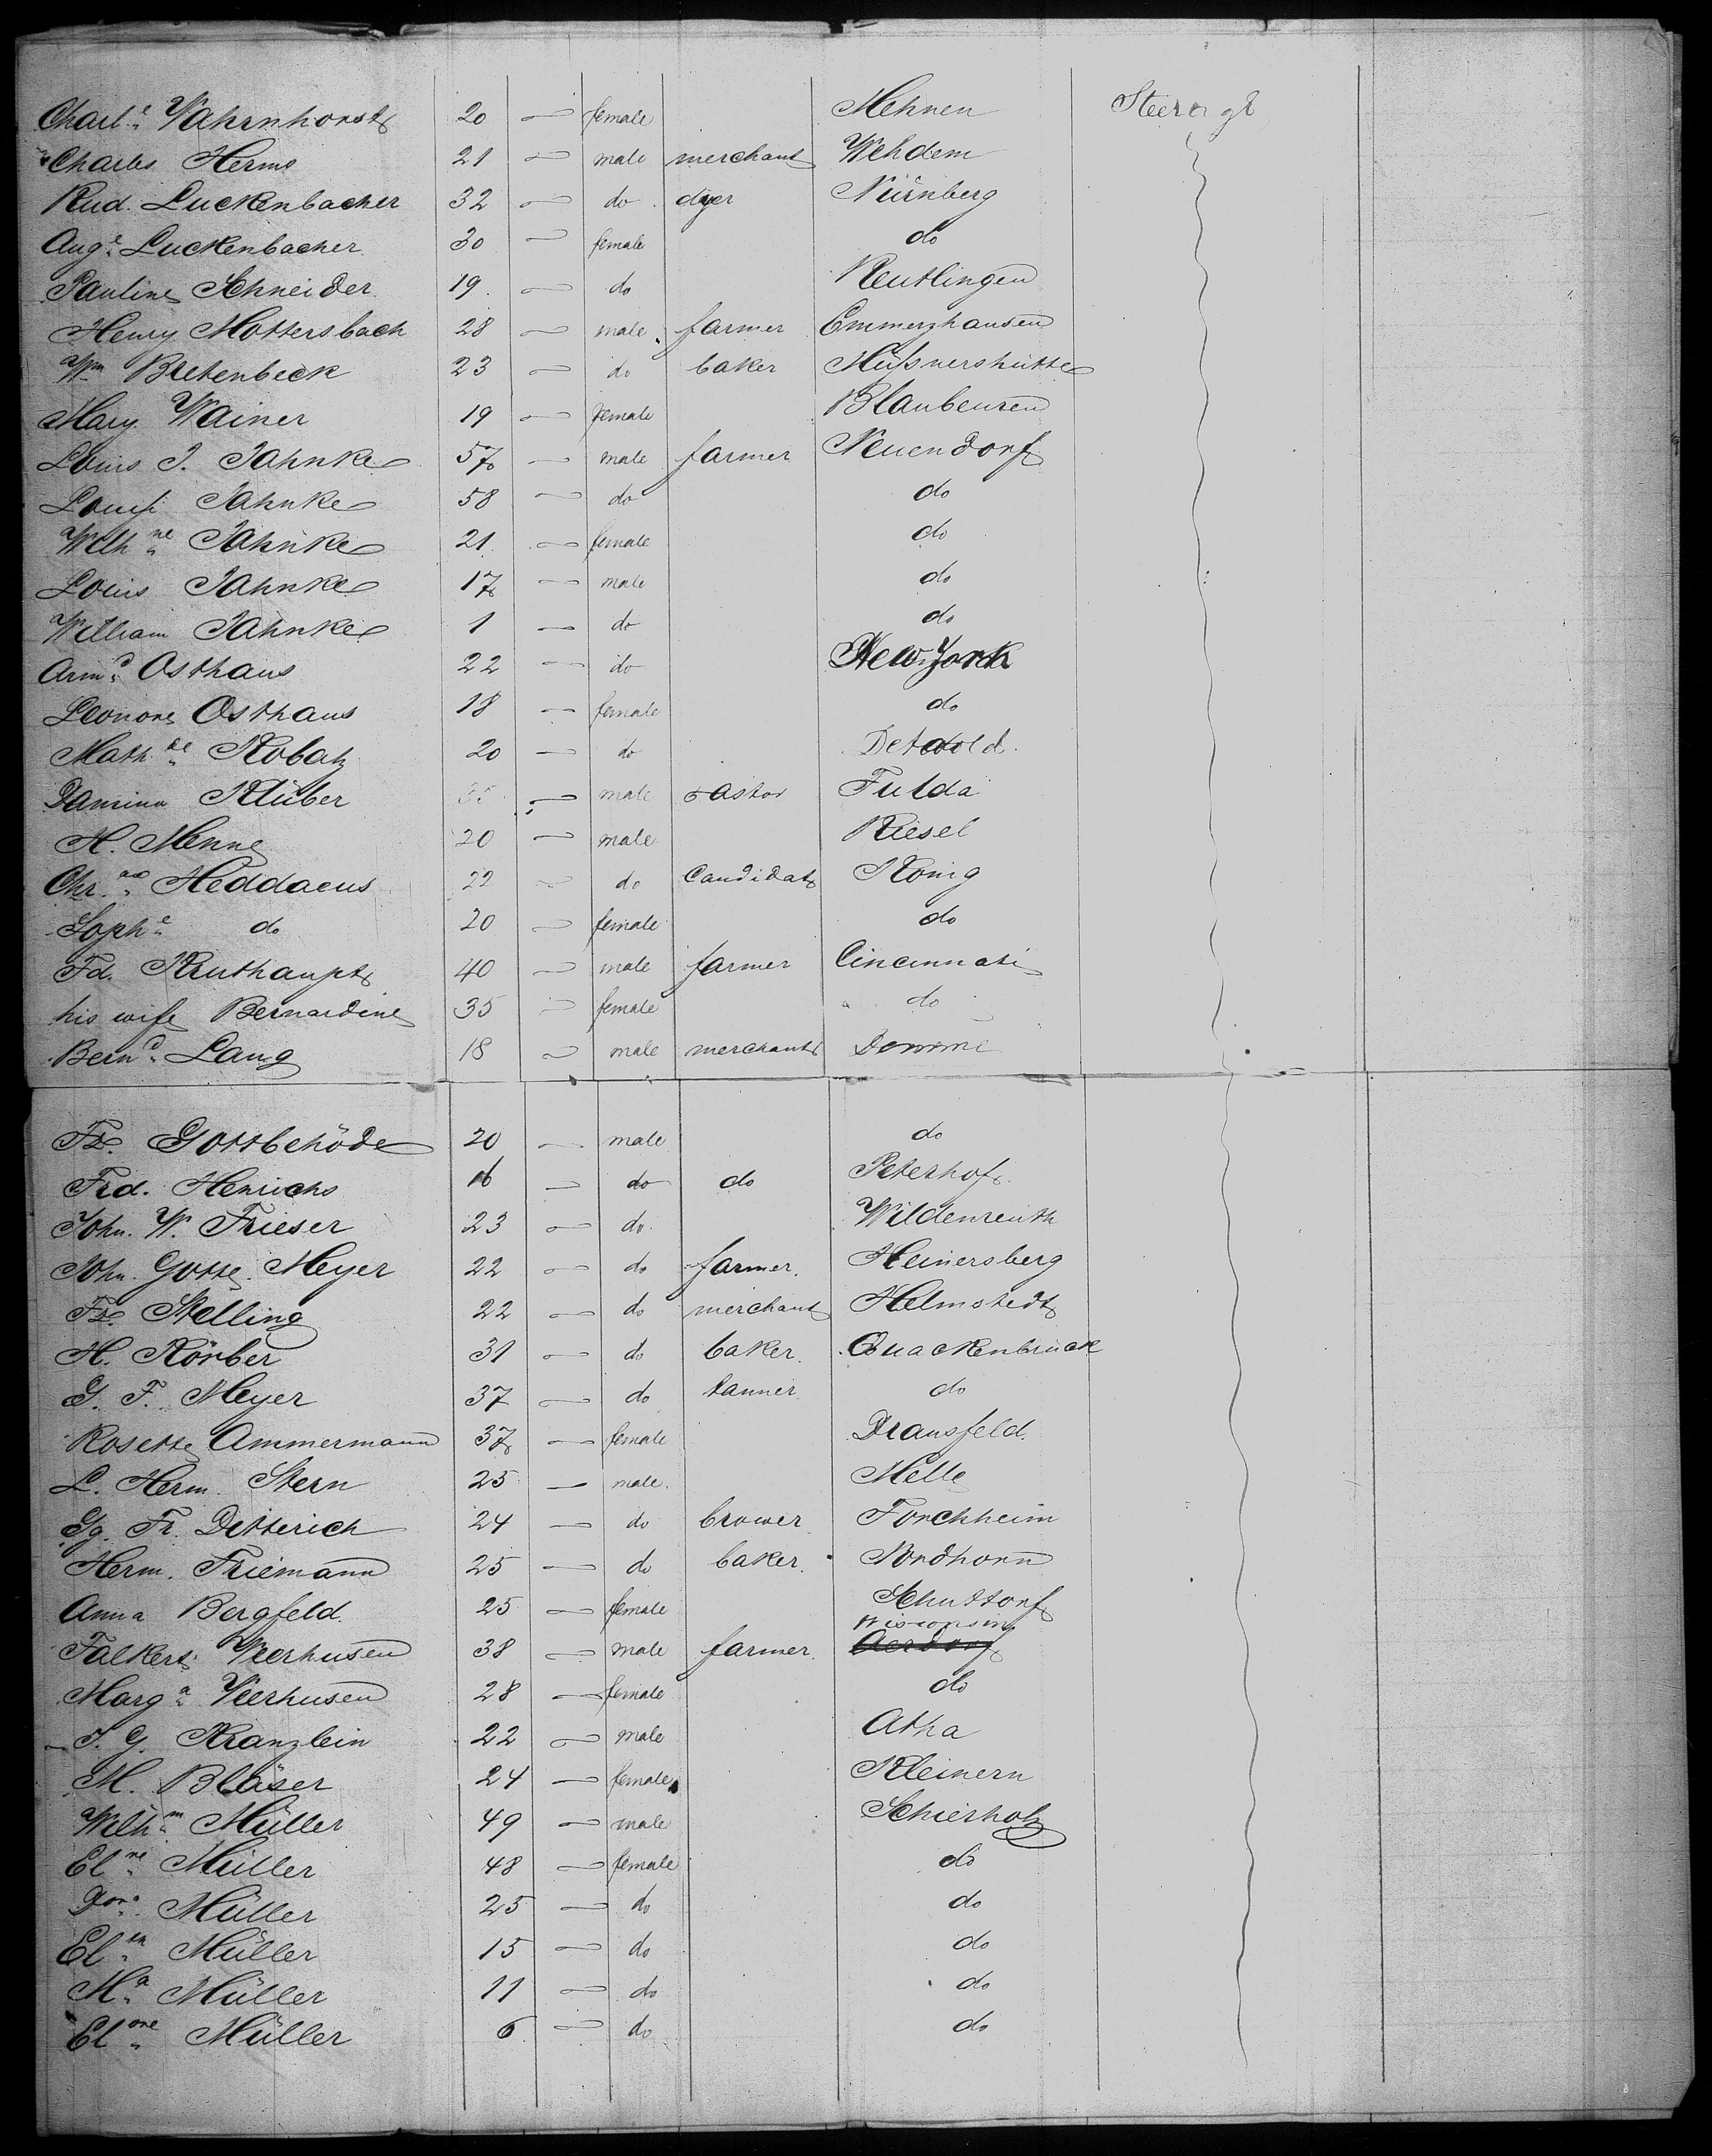 Charl.e Wahrnhorst 20 — female Mehnen Steerage
Charles Herms 21 — male merchant Wehdem
Rud. Luckenbacher 32 — do dyer Nürnberg
Aug.e Luckenbacher 30 — female do
Pauline Schneider 19 — do Reutlingen
Henry Mottersbach 28 — male farmer Emmerzhausen
Wm Bretenbeck 23 — do baker
Mary Wainer 19 — female Blaubeuren
Louis J. Jahnke 57 — male farmer Neuendorf
Louise Jahnke 58 — do do
Wilh.ne Jahnke 21 — female do
Louis Jahnke 17 — male do
William Jahnke 1 — do do
Arm.d Osthaus 22 — do New York
Leonore Osthaus 18 — female do
Math.de Kobatz 20 — do
Klüber — male Fulda
H. Menne 20 — male Riesel
Chr. Heddaeus 22 — do Candidat König
Soph.e do 20 — female do
Fd. Kruthaupt 40 — male farmer Cincinnati
his wife Bernardine 35 — female do
Bern.d Lang 18 — male merchant Damme
Fr. Gottbehöde 20 — male do
Frd. Henrichs 16 — do do Peterhof
John. W. Frieser 23 — do Wildenreuth
John. Gottl. Meyer 22 — do farmer Heinersberg
Fr. Stelling 22 — do merchant Helmstedt
H. Körber 31 — do baker Quackenbrück
G. F. Meyer 37 — do tanner do
Rosette Ammermann 37 — female Dransfeld
L. Herm. Stern 25 — male Melle
Gg. Fr. Detterich 24 — do brower Forchheim
Herm. Friemann 25 — do baker Nordhorn
Anna Bergfeld 25 — female Schuttorf
Wisconsin
Falkert Veerhusen 38 — male farmer
Marg.a Veerhusen 28 — female do
J. G. Kranzlein 22 — male Atha
M. Bläser 24 — female Kleinern
Wilh.m Müller 49 — male Schierholz
El.ne Müller 48 — female do
Dor.a Müller 25 — do do
El.en Müller 15 — do do
M.a Müller 11 — do do
El.ore Müller 6 — do do